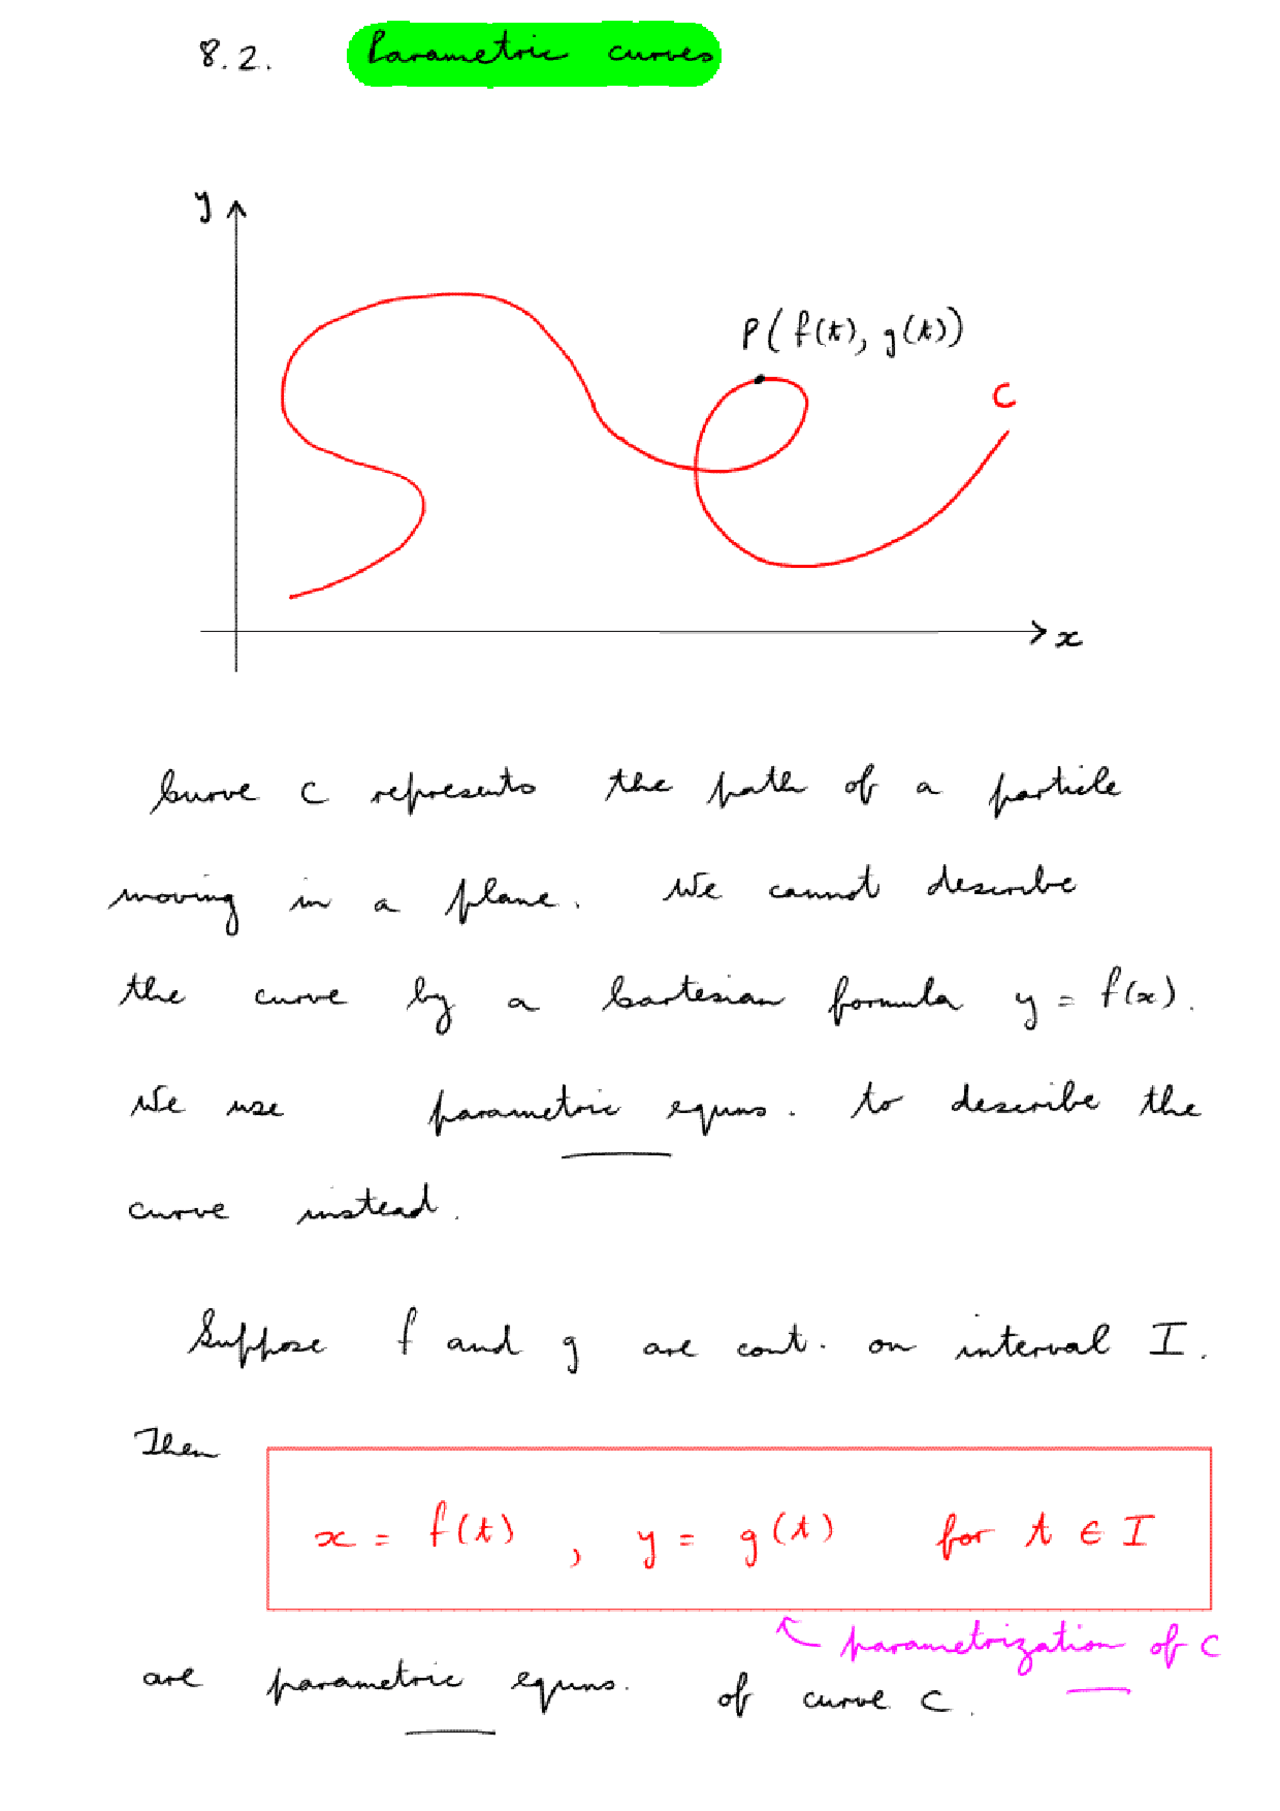 8.2. Parametric curves
y
P(f(t), g(t))
C
x
Curve C represents the path of a particle
moving in a plane. We cannot describe
the curve by a Cartesian formula y = f(x).
We use parametric equns. to describe the
curve instead.
Suppose f and g are cont. on interval I.
Then
x = f(t), y = g(t) for t ∈ I
parametrization of C
are parametric equns. of curve C.